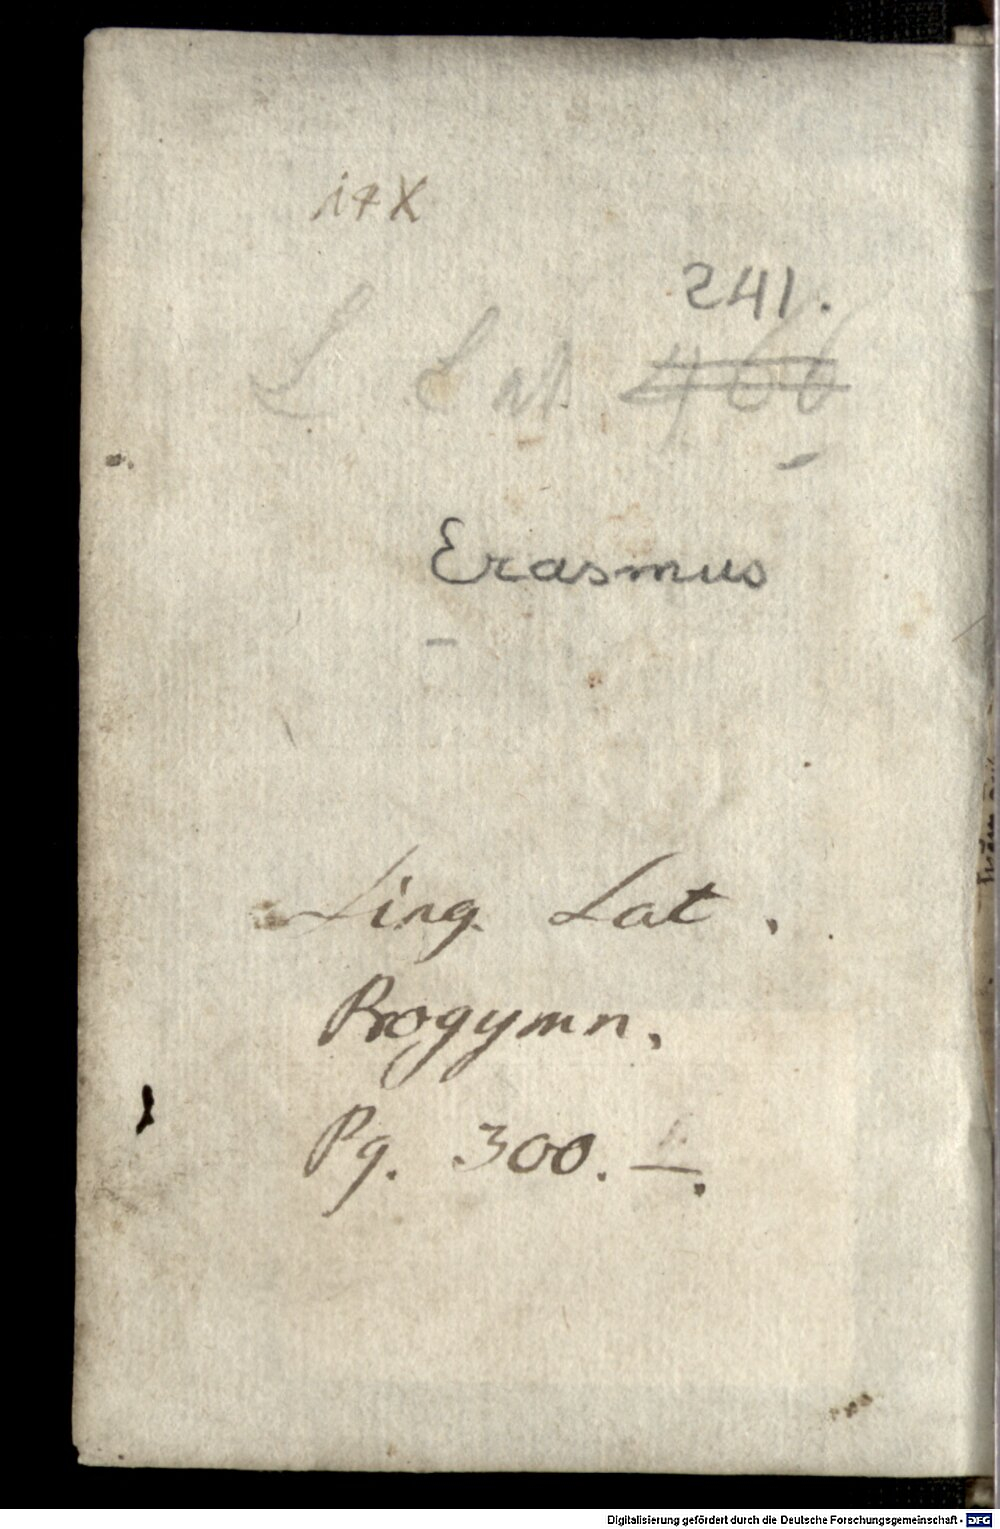 17X
241.
L Lat 466
Erasmus
Ling. Lat.
Progymn.
Pg. 300. —.
Digitalisierung gefördert durch die Deutsche Forschungsgemeinschaft - DFG